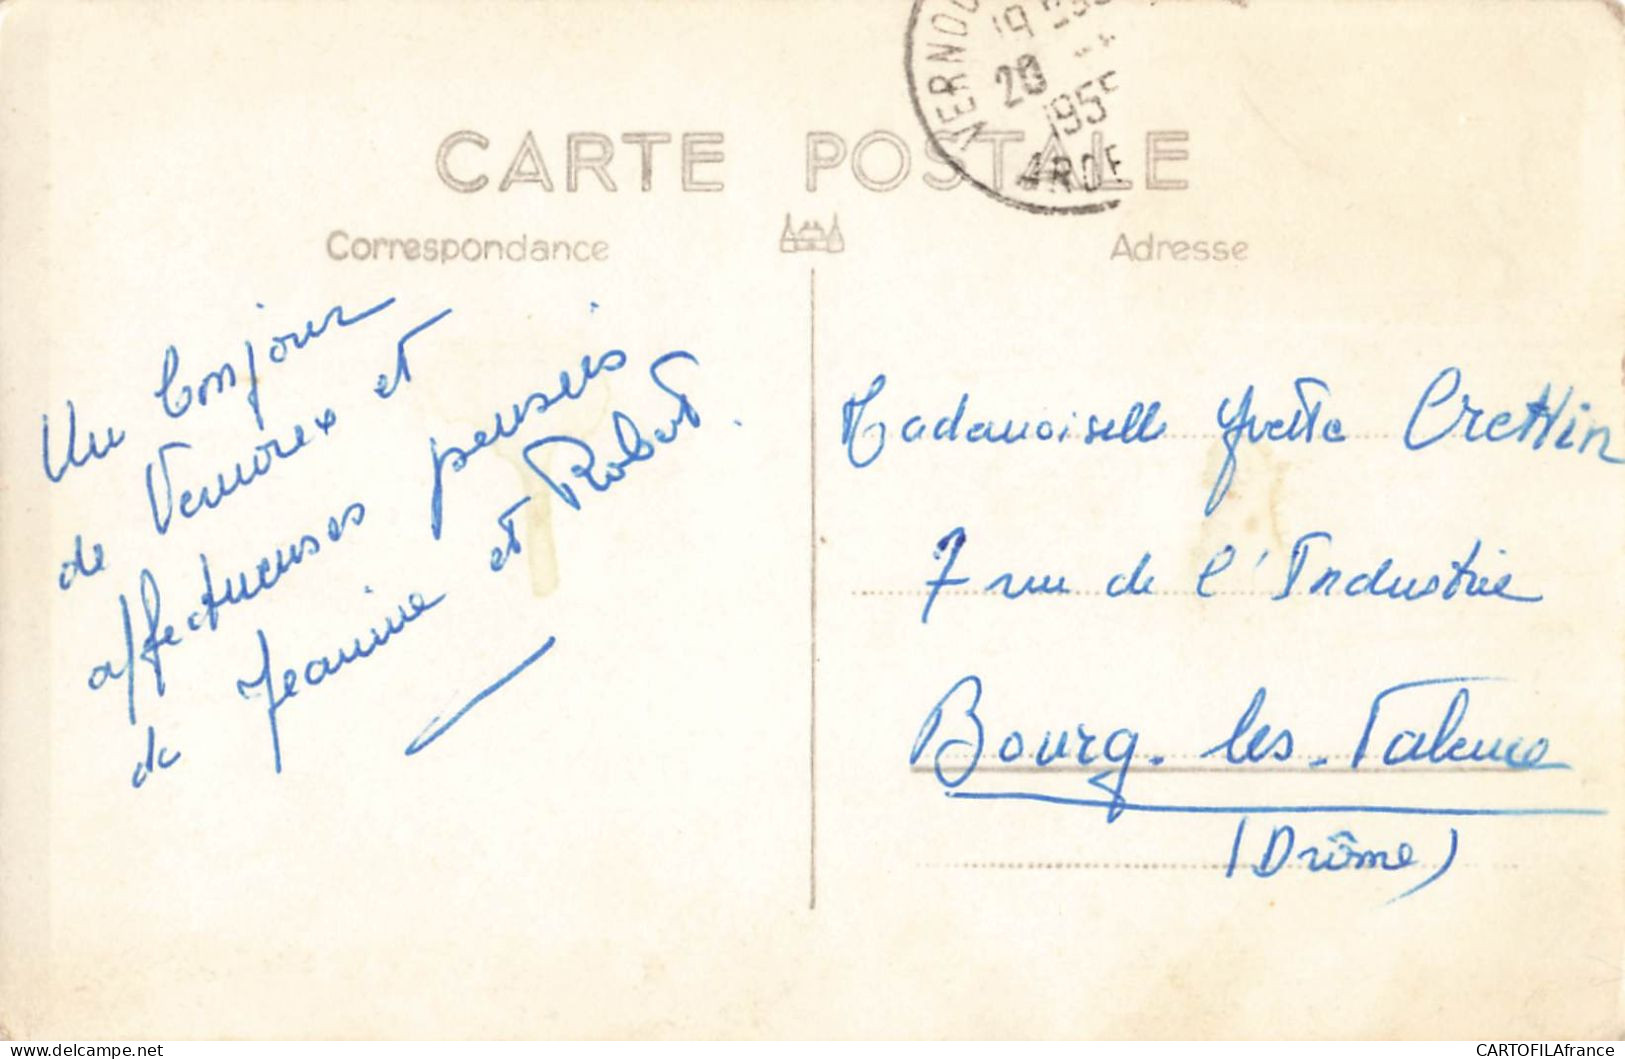 CARTE POSTALE
Correspondance
Adresse
VERNOU
19
20
1955
ARDE
Un bonjour
de Vernoux et
affectueuses pensées
de Jeanine et Robert.
Mademoiselle Yvette Crettin
7 rue de l'Industrie
Bourg-les-Valence
(Drôme)
delcampe.net
CARTOFILAfrance